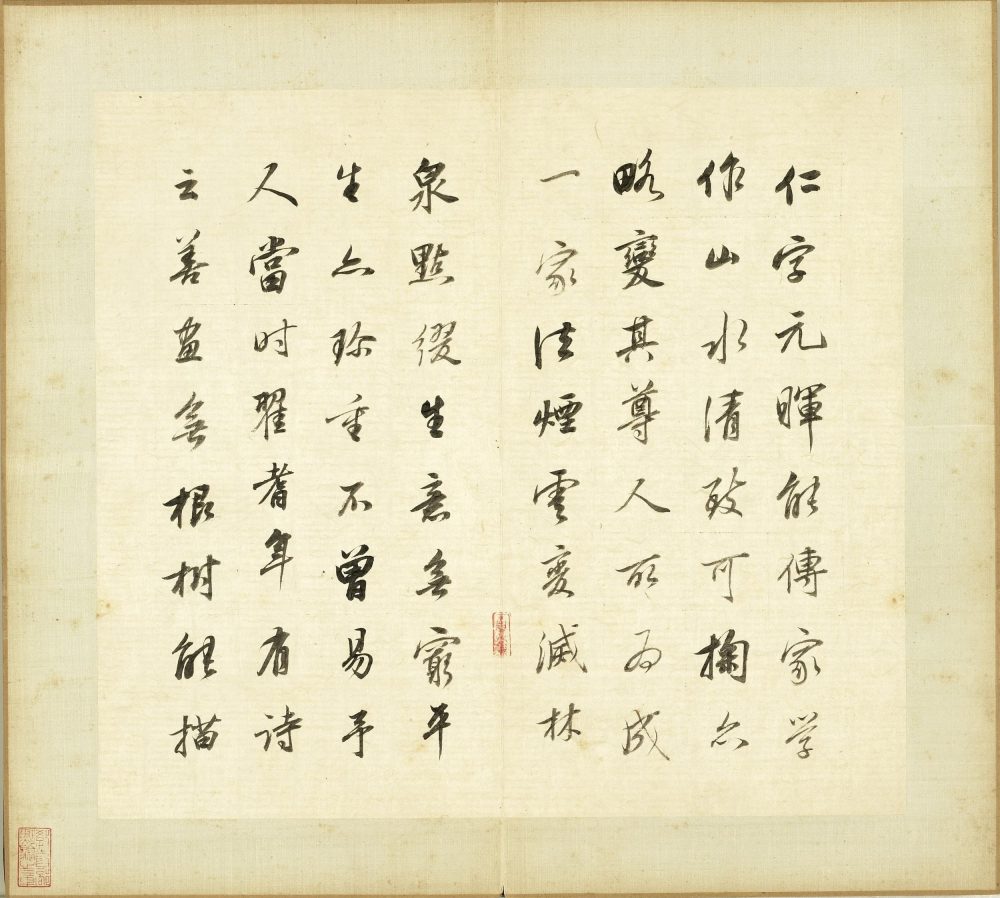 仁字元暉能傳家学
作山水清致可掬亦
略變其尊人所为成
一家法煙雲变滅林
泉點綴生意無窮平
生亦珍重不曾易予
人當时翟耆年有诗
云善畫無根树能描